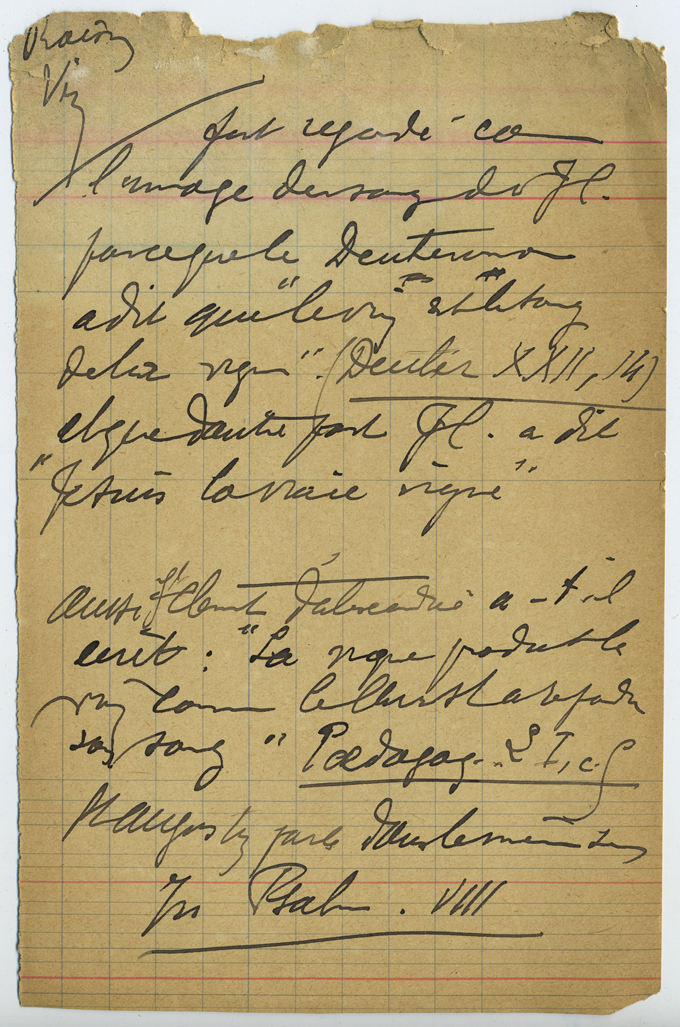 Raisin
Vin
fut regardé com
l'image du sang de J C.
parceque le Deuteronom
a dit que "le vin est le sang
de la vigne" (Deutér XXII, 14)
et que d'autre part J C. a dit
"Je suis la vraie vigne"
aussi St Clement d'Alexandrie a-t-il
écrit : "La vigne produit le
vin comme le Christ a répandu
son sang" Pædagog. L I, c. 5
St Augustin parle dans le même sens
In Psalm. VIII